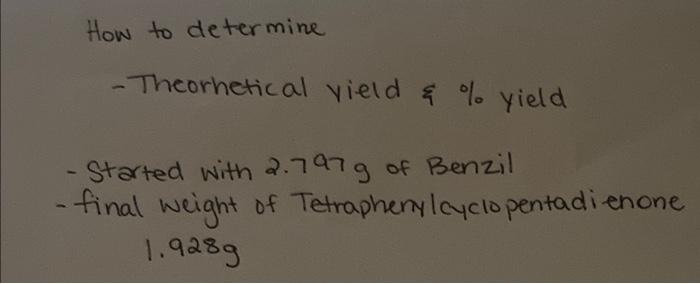 How to determine
- Theorhetical yield & % yield
- Started with 2.797g of Benzil
- final weight of Tetraphenylcyclopentadienone
1.928g